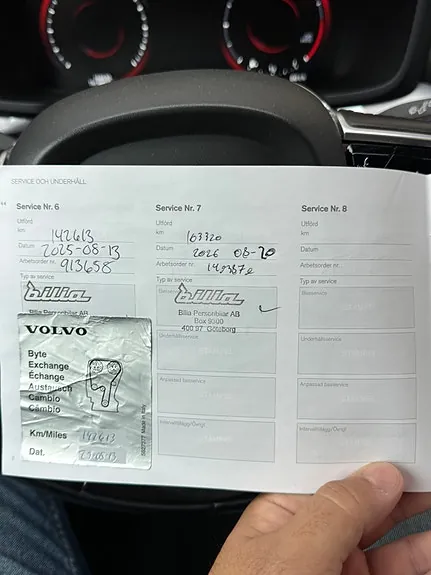 SERVICE OCH UNDERHÅLL
Service Nr. 6
Utförd
km 142613
Datum 2025-08-13
Arbetsorder nr. 913658
Typ av service
bilia
Bilia Personbilar AB
VOLVO
Byte
Exchange
Échange
Austausch
Cambio
Câmbio
Km/Miles 142613
Dat.
Made in Italy
Service Nr. 7
Utförd
km 163320
Datum 2026 08-20
Arbetsorder nr.
Typ av service
bilia
Bilia Personbilar AB
Box 9300
400 97 Göteborg
Underhållsservice
Anpassad basservice
Intervalltillägg/Övrigt
Service Nr. 8
Utförd
km
Datum
Arbetsorder nr.
Typ av service
Basservice
Underhållsservice
Anpassad basservice
Intervalltillägg/Övrigt